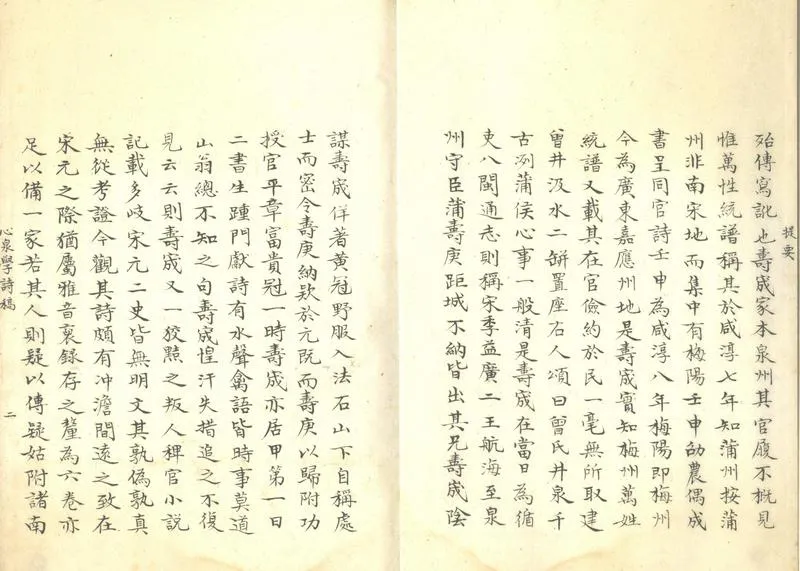 提要
殆傳寫訛也壽宬家本泉州其官履不概見
惟萬性統譜稱其於咸淳七年知蒲州按蒲
州非南宋地而集中有梅陽壬申劭農偶成
書呈同官詩壬申為咸淳八年梅陽即梅州
今為廣東嘉應州地是壽宬實知梅州萬姓
統譜又載其在官儉約於民一毫無所取建
曾井汲水二缾置座右人頌曰曾氏井泉千
古冽蒲侯心事一般清是壽宬在當日為循
吏八閩通志則稱宋季益廣二王航海至泉
州守臣蒲壽庚距城不納皆出其兄壽宬陰
謀壽宬佯著黃冠野服入法石山下自稱處
士而密令壽庚納欵於元既而壽庚以歸附功
授官平章富貴冠一時壽宬亦居甲第一日
二書生踵門獻詩有水聲禽語皆時事莫道
山翁總不知之句壽宬惶汗失措追之不復
見云云則壽宬又一狡黠之叛人稗官小說
記載多岐宋元二史皆無明文其孰偽孰真
無從考證今觀其詩頗有冲澹閒遠之致在
宋元之際猶屬雅音裒錄存之釐為六卷亦
足以備一家若其人則疑以傳疑姑附諸南
心泉學詩稿
二